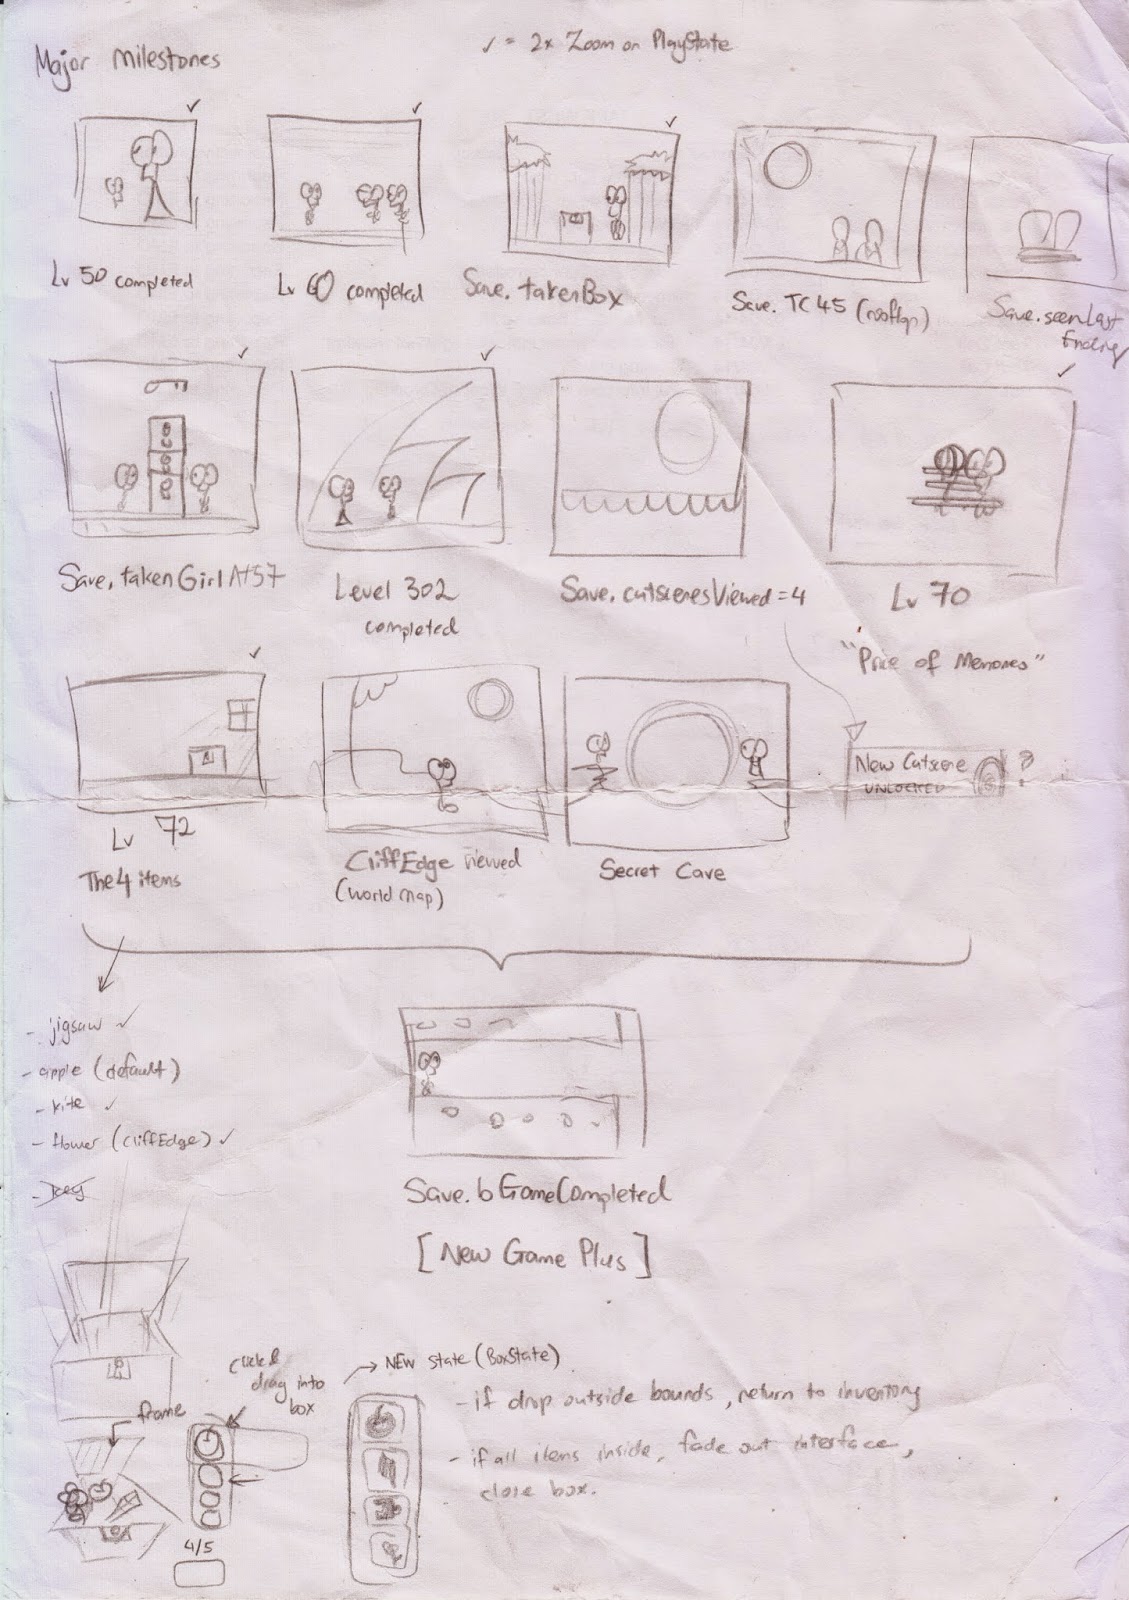 Major Milestones
✓ = 2x Zoom on PlayState
✓
✓
✓
Lv 50 completed
Lv 60 completed
Save.takenBox
Save.TC45 (rooftop)
Save.seenLast
Ending
✓
✓
✓
Save.takenGirlAt57
Level 302
completed
Save.cutscenesViewed=4
Lv 70
"Price of Memories"
✓
New Cutscene
UNLOCKED
?
Lv 72
The 4 items
CliffEdge viewed
(world map)
Secret Cave
- jigsaw ✓
- apple (default)
- kite ✓
- flower (cliffEdge) ✓
- key
Save.bGameCompleted
[New Game Plus]
click &
drag into
box
frame
4/5
NEW state (BoxState)
- if drop outside bounds, return to inventory
- if all items inside, fade out interface,
close box.